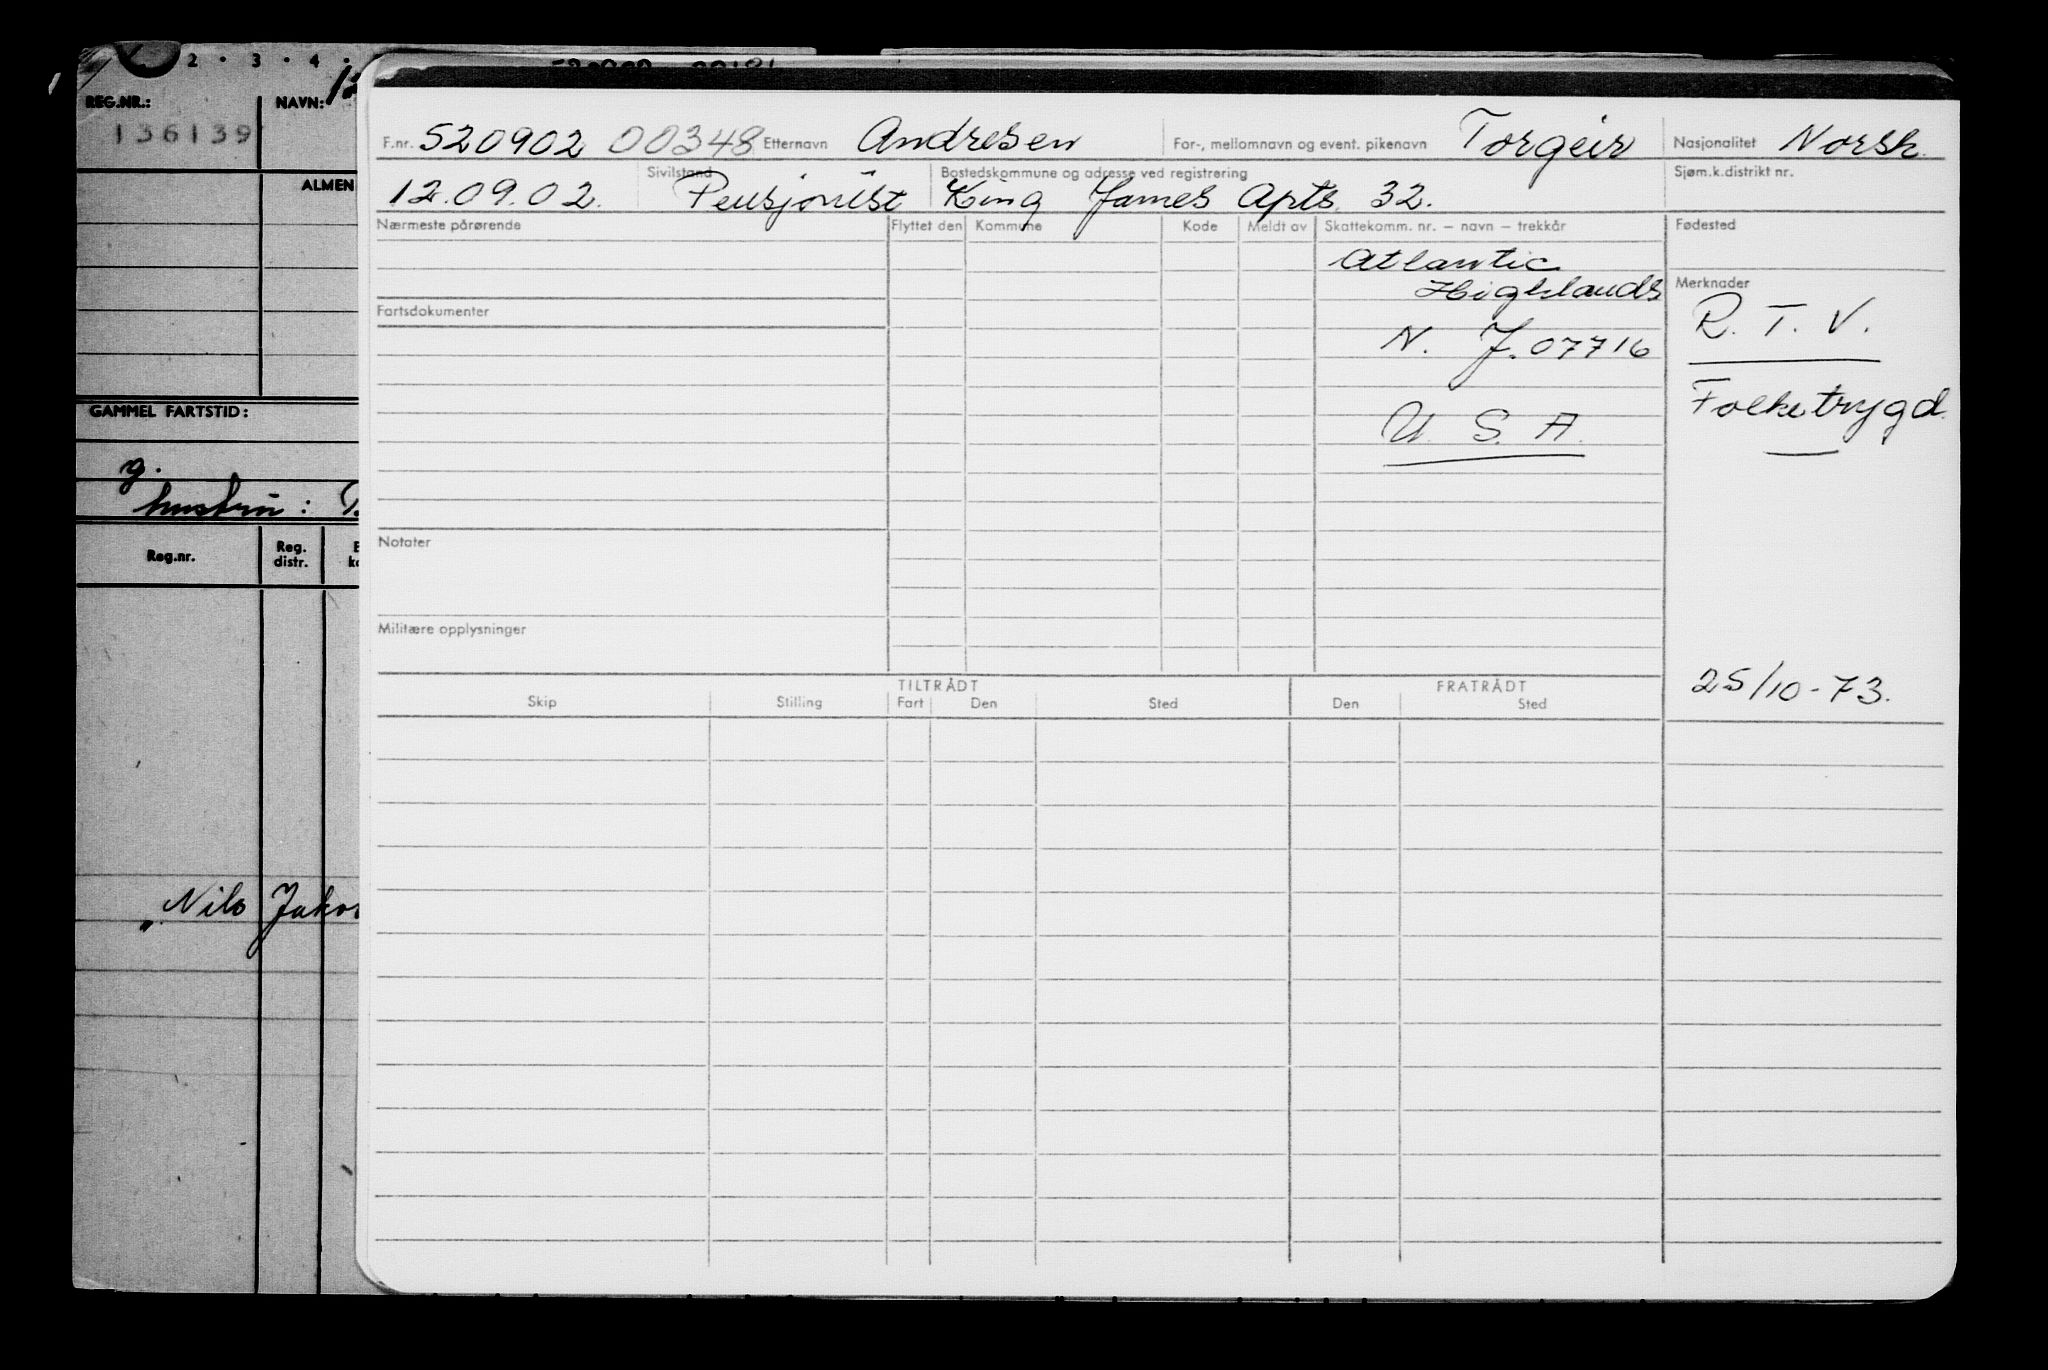 2 · 3 · 4 ·
REG.NR.: NAVN:
136139
ALMEN
GAMMEL FARTSTID:
g.
hustru :
Reg.nr. Reg. distr.
Nils Jakob
F.nr. 520902 00348 Etternavn Andresen For-, mellomnavn og event. pikenavn Torgeir Nasjonalitet Norsk.
Sivilstand Bostedskommune og adresse ved registrering Sjøm.k.distrikt nr.
12.09.02. Pensjonist King James Apts. 32.
Nærmeste pårørende Flyttet den Kommune Kode Meldt av Skattekomm. nr. – navn – trekkår Fødested
Atlantic
Highlands Merknader
Fartsdokumenter R. T. V.
N. J. 07716
Folketrygd.
U. S. A.
Notater
Militære opplysninger
25/10-73.
TILTRÅDT FRATRÅDT
Skip Stilling Fart Den Sted Den Sted